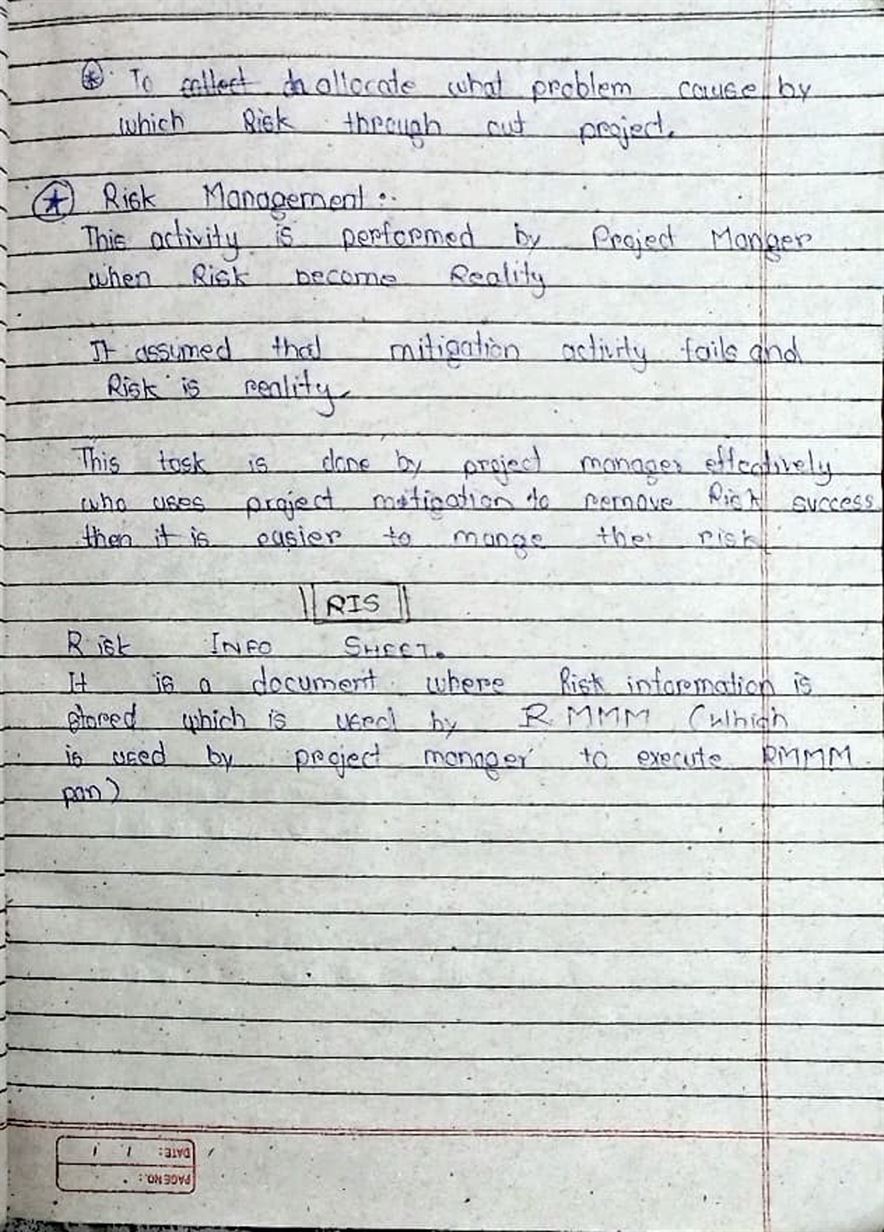 To collect allocate what problem cause by
which Risk through out project.
Risk Management :.
This activity is performed by Project Manger
when Risk become Reality
It assumed that mitigation activity fails and
Risk is reality.
This task is done by project manager effectively
who uses project mitigation to remove Risk success
then it is easier to mange the risk
RIS
Risk INFO SHEET.
It is a document where Risk information is
stored which is used by RMMM (which
is used by project manager to execute RMMM
pan)
DATE: / /
PAGE NO.: